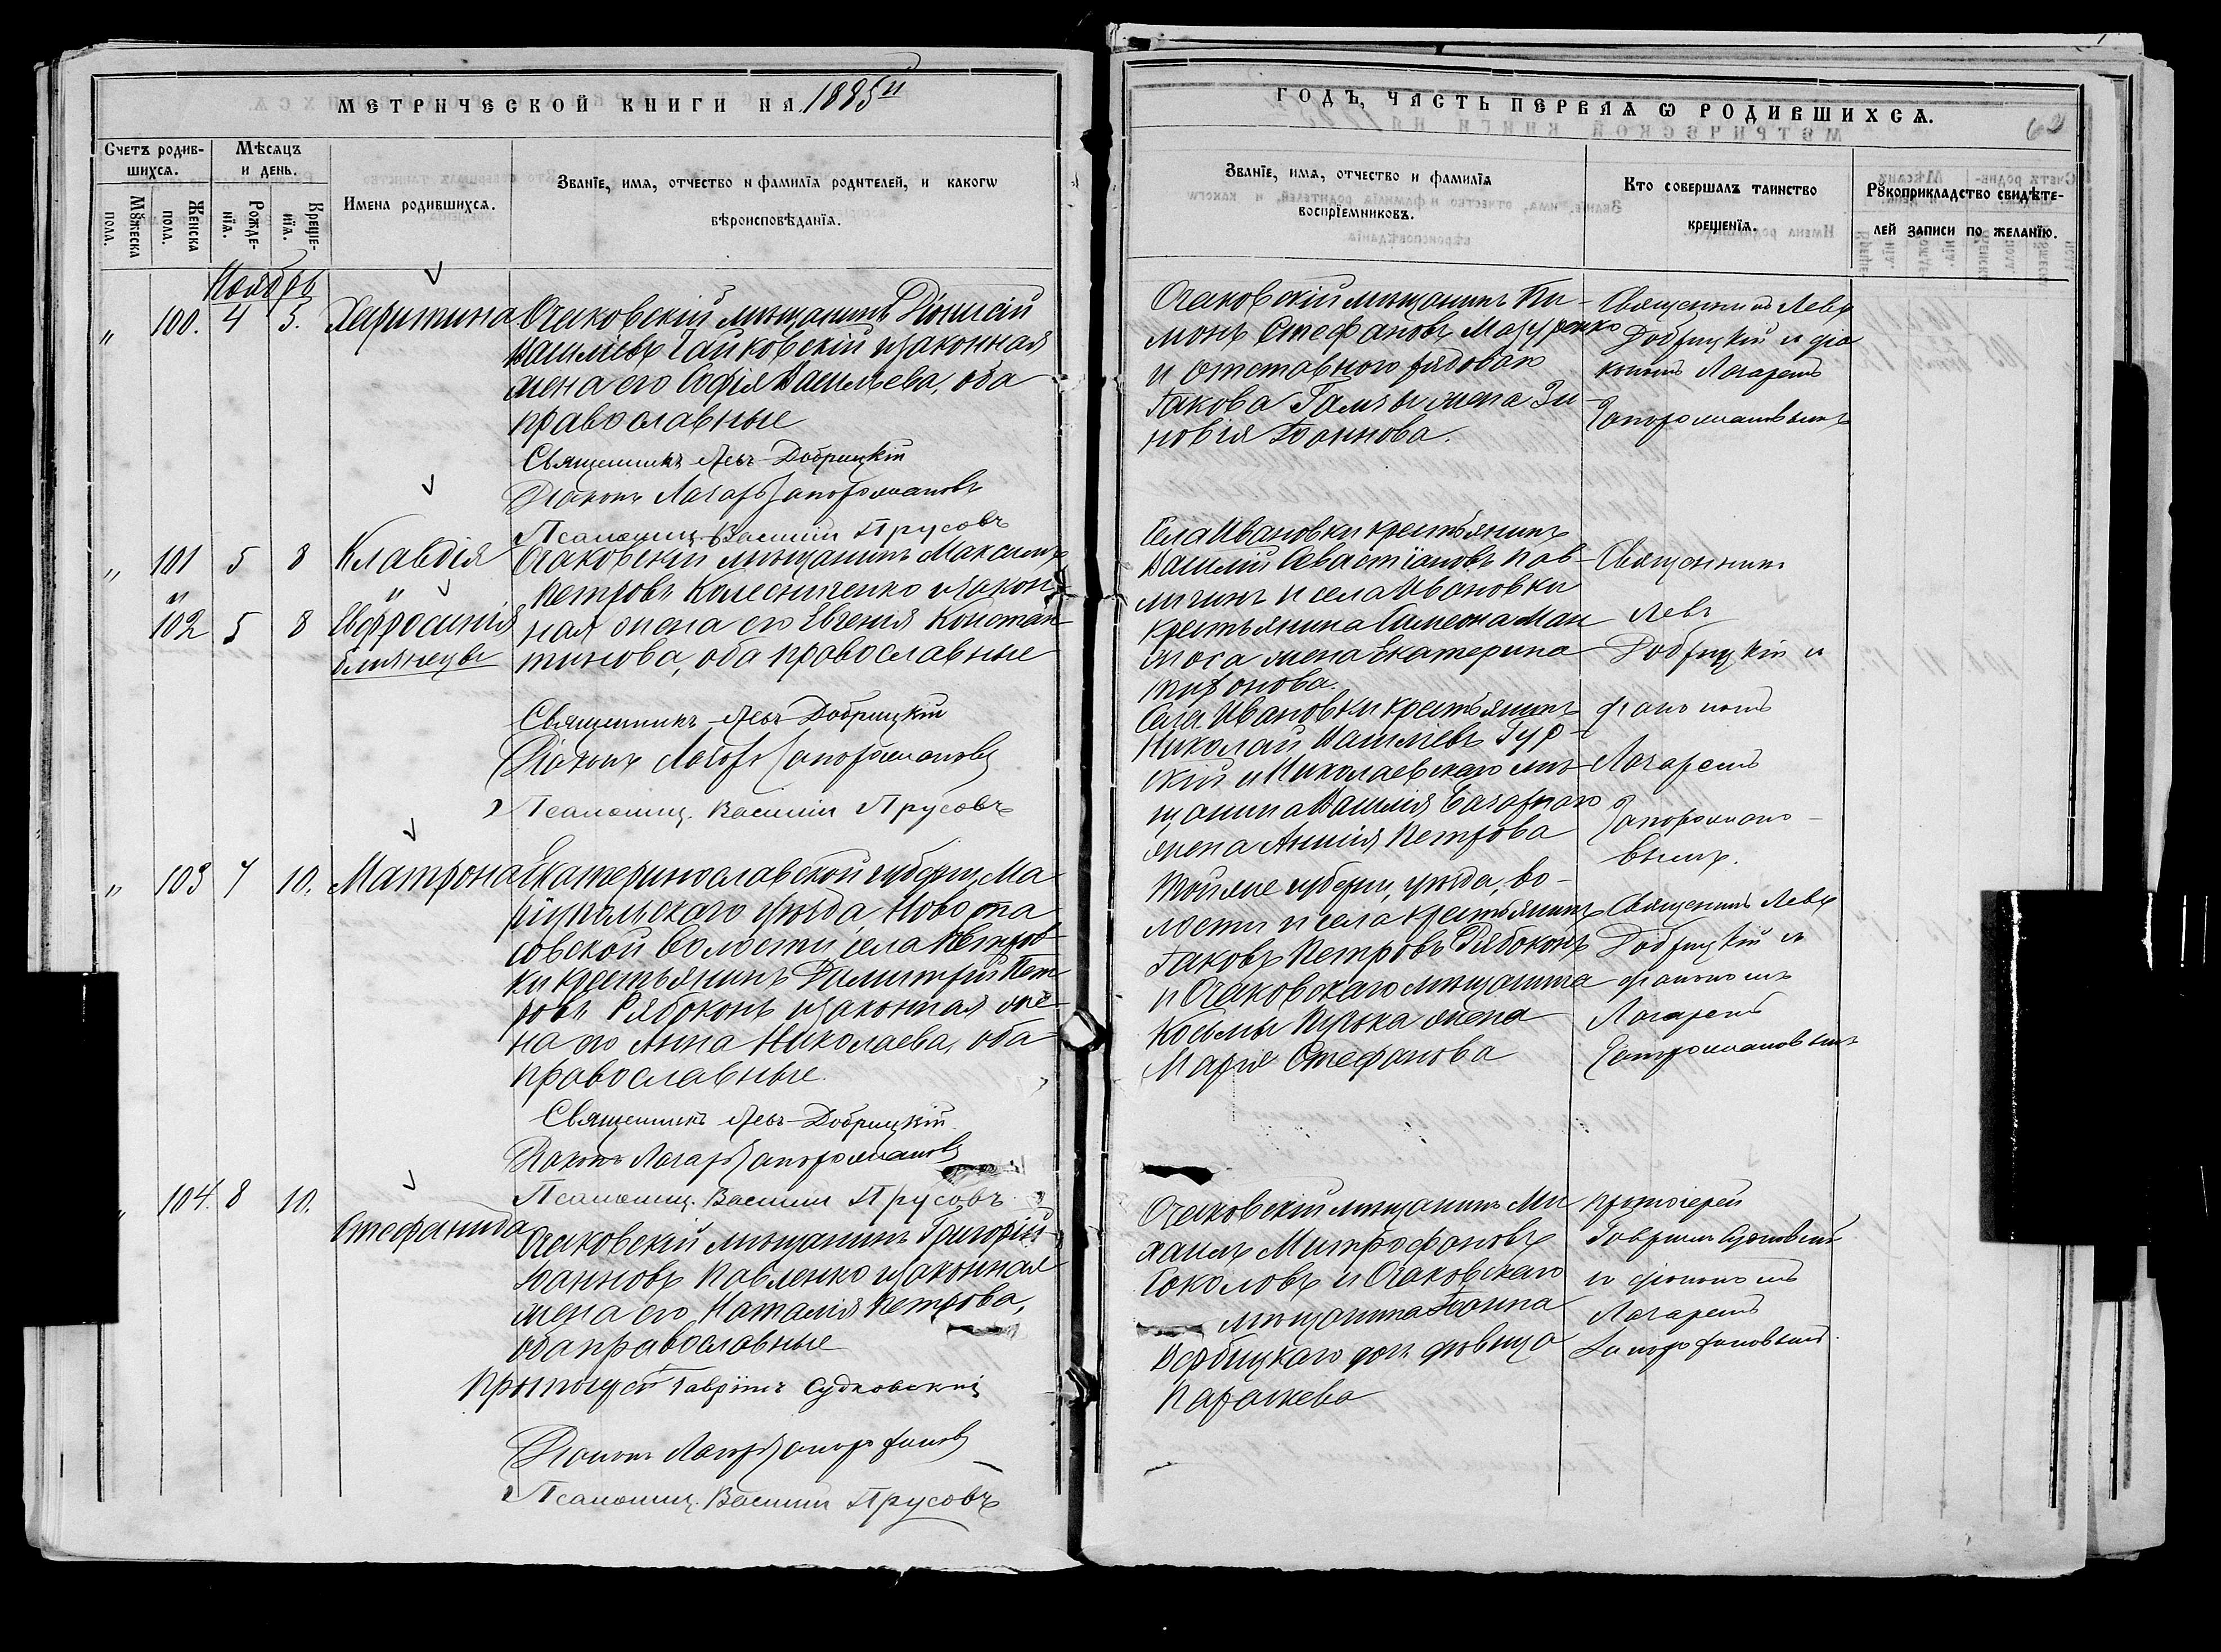 МЕТРИЧЕСКОЙ КНИГИ НА 1885й
Счетъ родив-
шихсѧ.
Мѣсѧцъ
и день.
Мꙋжеска
пола.
Женска
пола.
Рожде-
нїѧ.
Креще-
нїѧ.
Имена родившихсѧ.
Званїе, имѧ, отчество и фамилїѧ родителей, и какогѡ
вѣроисповѣданїѧ.
Ноябрь
" 100. 4 5. Харитина
Очаковскій мѣщанинъ Діонисій
Васильевъ Чайковскій и законная
жена его Софія Васильева, оба
православные
Священникъ Левъ Добрицкій
Діаконъ Лазарь Запорожановъ
Псаломщ. Василій Прусовъ
" 101 5 8 Клавдія
" "
102 5 8 Евфросинія
близнецы
Очаковскій мѣщанинъ Максимъ
Петровъ Колесниченко и закон-
ная жена его Евгенія Констан-
тинова, оба православные
Священникъ Левъ Добрицкій
Діаконъ Лазарь Запорожановъ
Псаломщ. Василій Прусовъ
" 103 7 10. Матрона
Екатеринославской губерніи, Ма-
ріупольскаго уѣзда, Ново
совской волости села Петров-
ки крестьянинъ Димитрій Пет-
ровъ Рябоконь и законная же-
на его Анна Николаева, оба
православные.
Священникъ Левъ Добрицкій
Діаконъ Лазарь Запорожановъ
Псаломщ. Василій Прусовъ
" 104. 8 10. Стефанида
Очаковскій мѣщанинъ Григорій
Іоанновъ Павленко и законная
жена его Наталія Петрова,
оба православные
Протоіерей Гавріилъ Судковскій
Діаконъ Лазарь
Псаломщ. Василій Прусовъ
ГОДЪ, ЧАСТЬ ПЕРВАѦ Ѡ РОДИВШИХСѦ.
Званїе, имѧ, отчество и фамилїѧ
воспрїемниковъ.
Кто совершалъ таинство
крещенїѧ.
Рꙋкоприкладство свидѣте-
лей записи по желанїю.
Очаковскій мѣщанинъ
Стефановъ Мазуренко
и отставного рядового
Іакова жена Зи-
новія Іоаннова.
Священникъ Левъ
Добрицкій и діа-
кономъ Лазаремъ
Запорожановымъ
Села Ивановки крестьянинъ
Василій Севастіановъ Пав-
и села Ивановки
крестьянина Симеона
жена Екатерина
Села Ивановки крестьянинъ
Николай Васильевъ Гур-
скій и Николаевскаго мѣ-
щанина Василія
жена Анисія Петрова
Священникъ
Левъ
Добрицкій и
діакономъ
Лазаремъ
Запорожано-
вымъ.
Той же губерніи, уѣзда, во-
лости и села крестьянинъ
Іаковъ Петровъ Рябоконь
и Очаковскаго мѣщанина
Космы жена
Марія Стефанова
Священникъ Левъ
Добрицкій и
діакономъ
Лазаремъ
Запорожановымъ
Очаковскій мѣщанинъ Ми-
хаилъ Митрофановъ
Соколовъ и Очаковскаго
мѣщанина Іоанна
Вербицкаго дочь дѣвица
Параскева
Протоіерей
Гавріилъ Судковскій
и діакономъ
Лазаремъ